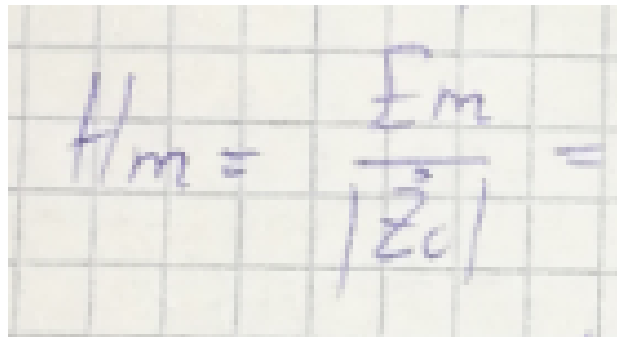 Hm = Em / |Żc| =